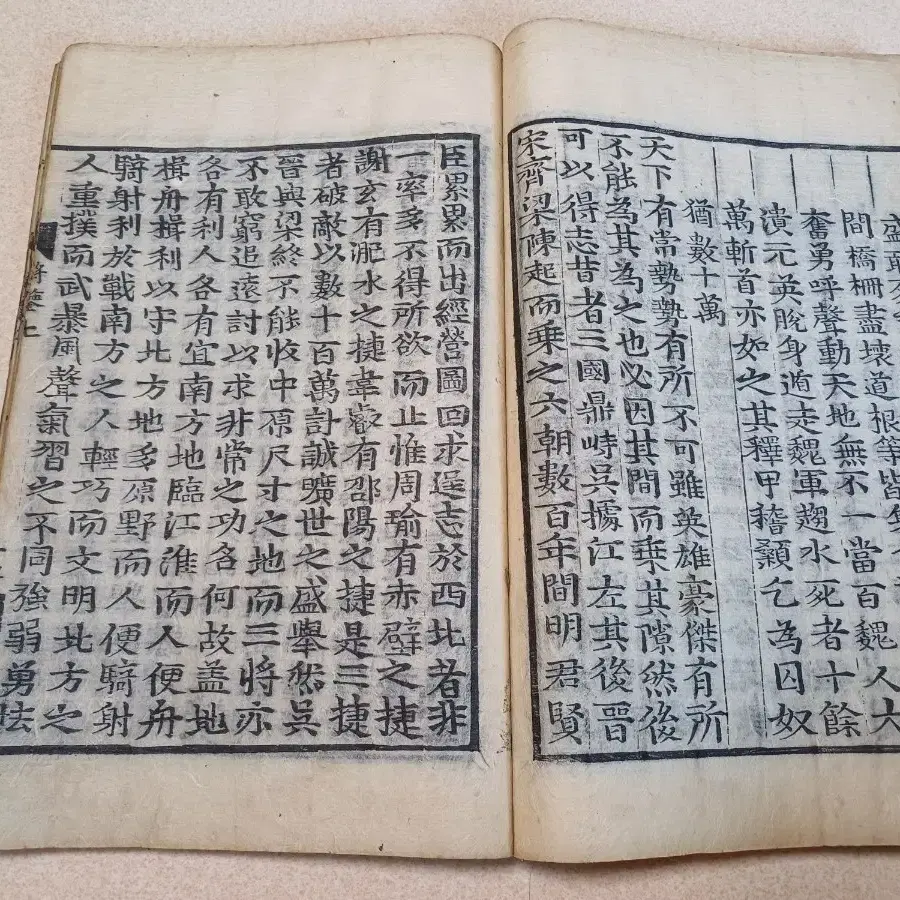 間橋柵盡壞道根等皆
奮勇呼聲動天地無不一當百魏人大
潰元英脫身遁走魏軍趨水死者十餘
萬斬首亦如之其釋甲稽顙乞為囚奴
猶數十萬
天下有常勢勢有所不可雖英雄豪傑有所
不能為其為之也必因其間而乗其隙然後
可以得志昔者三國鼎峙吳據江左其後晉
宋齊梁陳起而乗之六朝數百年間明君賢
臣累累而出經營圖回求逞志於西北者非
一率多不得所欲而止惟周瑜有赤壁之捷
謝玄有淝水之捷韋叡有邵陽之捷是三捷
者破敵以數十百萬計誠曠世之盛舉然吳
晉與梁終不能收中原尺寸之地而三將亦
不敢窮追遠討以求非常之功名何故盖地
各有利人各有宜南方地臨江淮而人便舟
楫舟楫利以守北方地多原野而人便騎射
騎射利於戰南方之人輕巧而文明北方之
人重撲而武暴風聲氣習之不同強弱勇怯